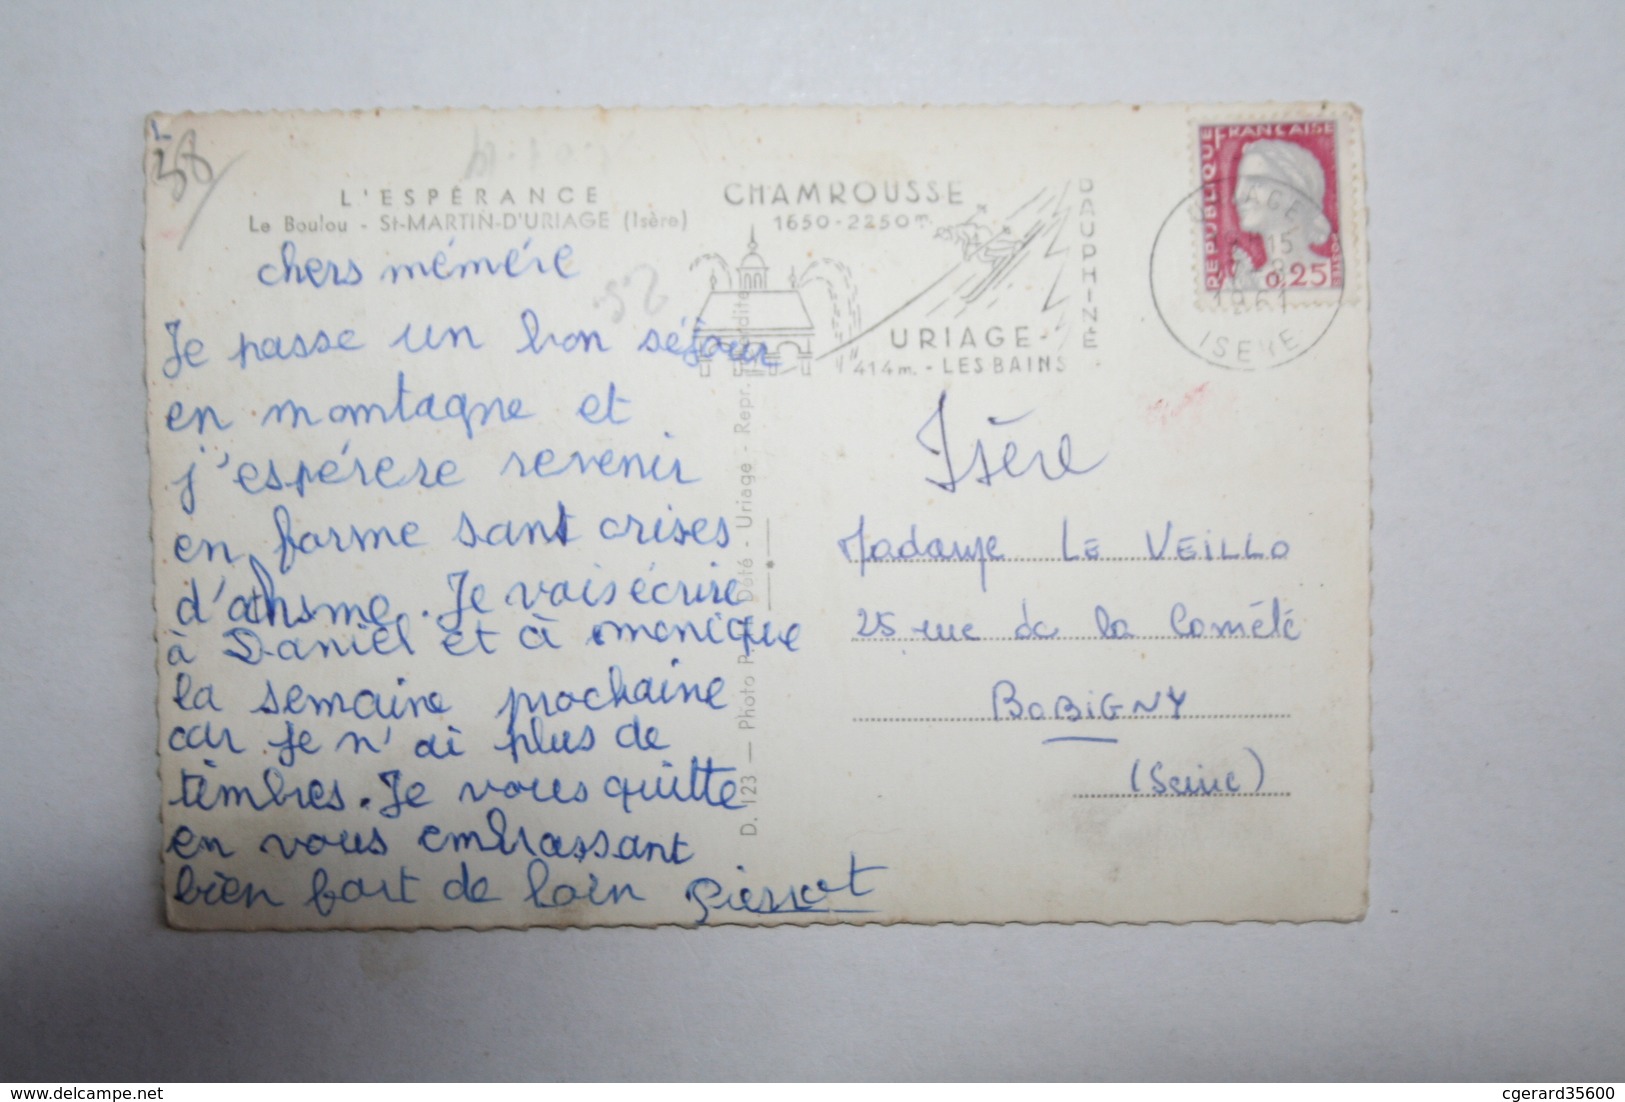 38
L'ESPÉRANCE
Le Boulou - St-MARTIN-D'URIAGE (Isère)
chers mémére
Je passe un bon séjour
en momtagne et
j'espérere revenir
en forme sant crises
d'athsme. Je vais écrire
à Daniel et à monique
la semaine prochaine
car je n'ai plus de
timbres. Je vous quitte
en vous embrassant
bien fort de loin Pierrot
D. 123 — Photo Doté - Uriage - Repr. interdite
CHAMROUSSE
1650-2250m.
DAUPHINÉ
URIAGE-
414m. - LES BAINS
RÉPUBLIQUE FRANÇAISE
0,25
URIAGE
15
1961
ISERE
Isère
Madame LE VEILLO
25 rue de la Cométe
BOBIGNY
(Seine)
cgerard35600